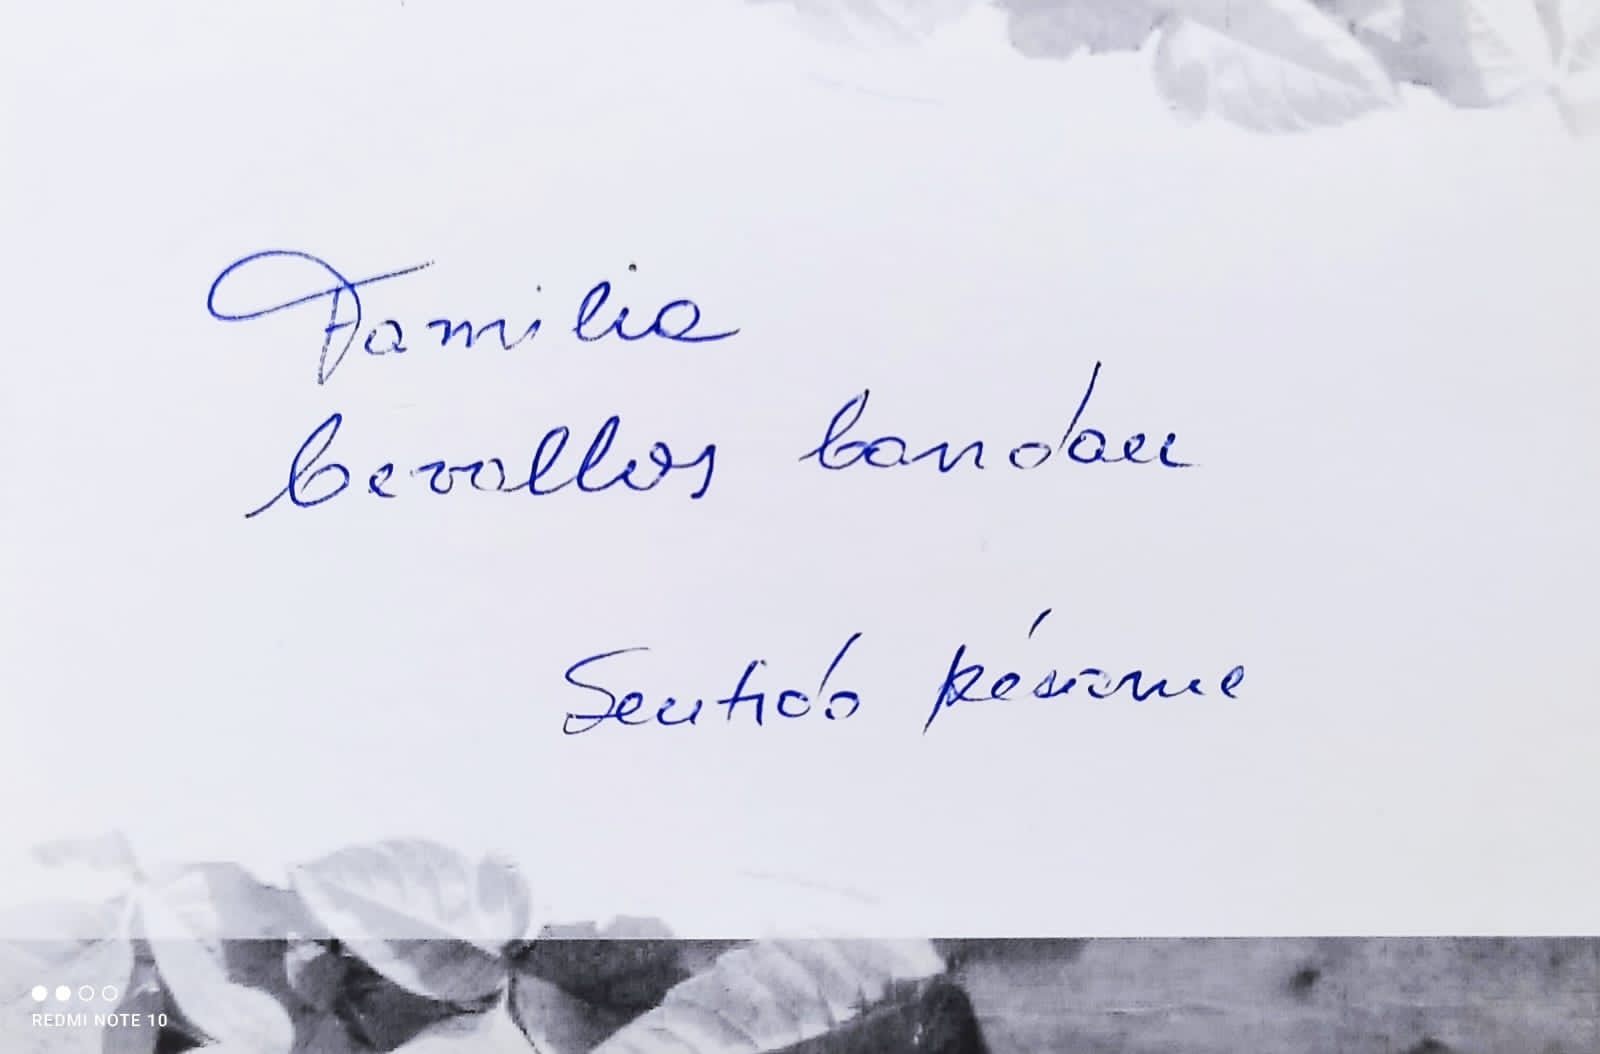 Familia
Cevallos Candau
Sentido pésame
REDMI NOTE 10